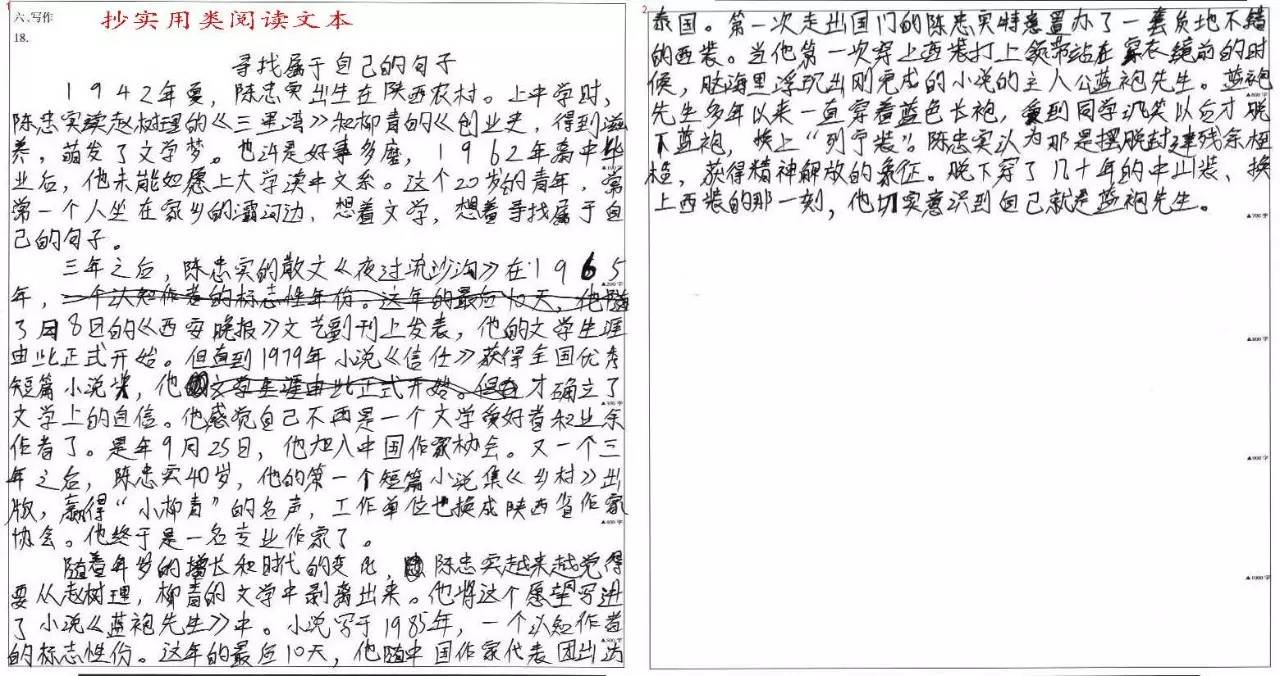 1
六、写作
抄实用类阅读文本
18.
寻找属于自己的句子
1942年夏，陈忠实出生在陕西农村。上中学时，
陈忠实读赵树理的《三里湾》和柳青的《创业史，得到滋
养，萌发了文学梦。也许是好事多磨，1962年高中毕
业后，他未能如愿上大学读中文系。这个20岁的青年，常
常一个人坐在家乡的灞河边，想着文学，想着寻找属于自
己的句子。
三年之后，陈忠实的散文《夜过流沙沟》在1965
年，一个认知作者的标志性年份。这年的最后10天，他随
3月8日的《西安晚报》文艺副刊上发表，他的文学生涯
由此正式开始。但直到1979年小说《信任》获得全国优秀
短篇小说奖，他文学生涯由此正式开始。但直才确立了
文学上的自信。他感觉自己不再是一个文学爱好者和业余
作者了。是年9月25日，他加入中国作家协会。又一个三
年之后，陈忠实40岁，他的第一个短篇小说集《乡村》出
版，赢得“小柳青”的名声，工作单位也换成陕西省作家
协会。他终于是一名专业作家了。
随着年岁的增长和时代的变化，陈忠实越来越觉得
要从赵树理，柳青的文学中剥离出来。他将这个愿望写进
了小说《蓝袍先生》中。小说写于1985年，一个认知作者
的标志性份。这年的最后10天，他随中国作家代表团出访
2
泰国。第一次走出国门的陈忠实特意置办了一套质地不错
的西装。当他第一次穿上西装打上领带站在穿衣镜前的时
候，脑海里浮现出刚完成的小说的主人公蓝袍先生。蓝袍
先生多年以来一直穿着蓝色长袍，受到同学讥笑以后才脱
下蓝袍，换上“列宁装”。陈忠实认为那是摆脱封建残余桎
梏，获得精神解放的象征。脱下穿了几十年的中山装、换
上西装的那一刻，他切实意识到自己就是蓝袍先生。
▲700字
▲800字
▲900字
▲1000字